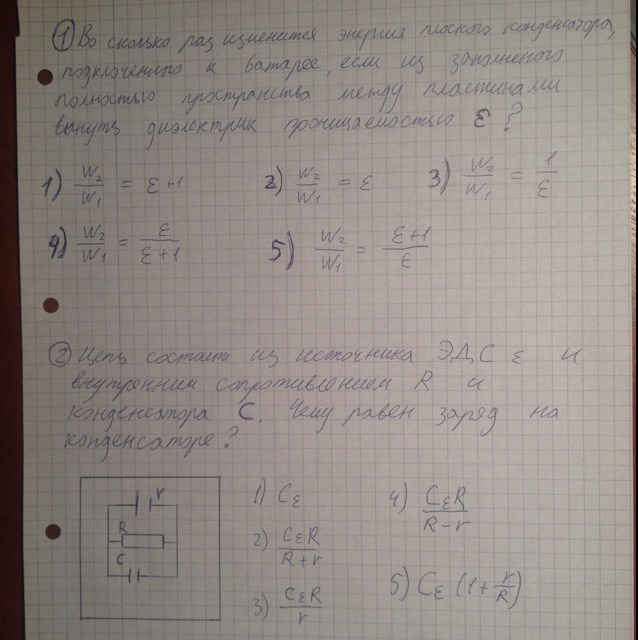 ① Во сколько раз изменится энергия плоского конденсатора,
подключенного к батарее, если из заполненого
полностью пространства между пластинами
вынуть диэлектрик проницаемостью ε?
1) W₂/W₁ = ε+1 2) W₂/W₁ = ε 3) W₂/W₁ = 1/ε
4) W₂/W₁ = ε/(ε+1) 5) W₂/W₁ = (ε+1)/ε
② Цепь состоит из источника ЭДС ε и
внутренним сопротивлением R и
конденсатора C. Чему равен заряд на
конденсаторе?
r
R
C
1) Cε
2) CεR/(R+r)
3) CεR/r
4) CεR/(R-r)
5) Cε (1+r/R)